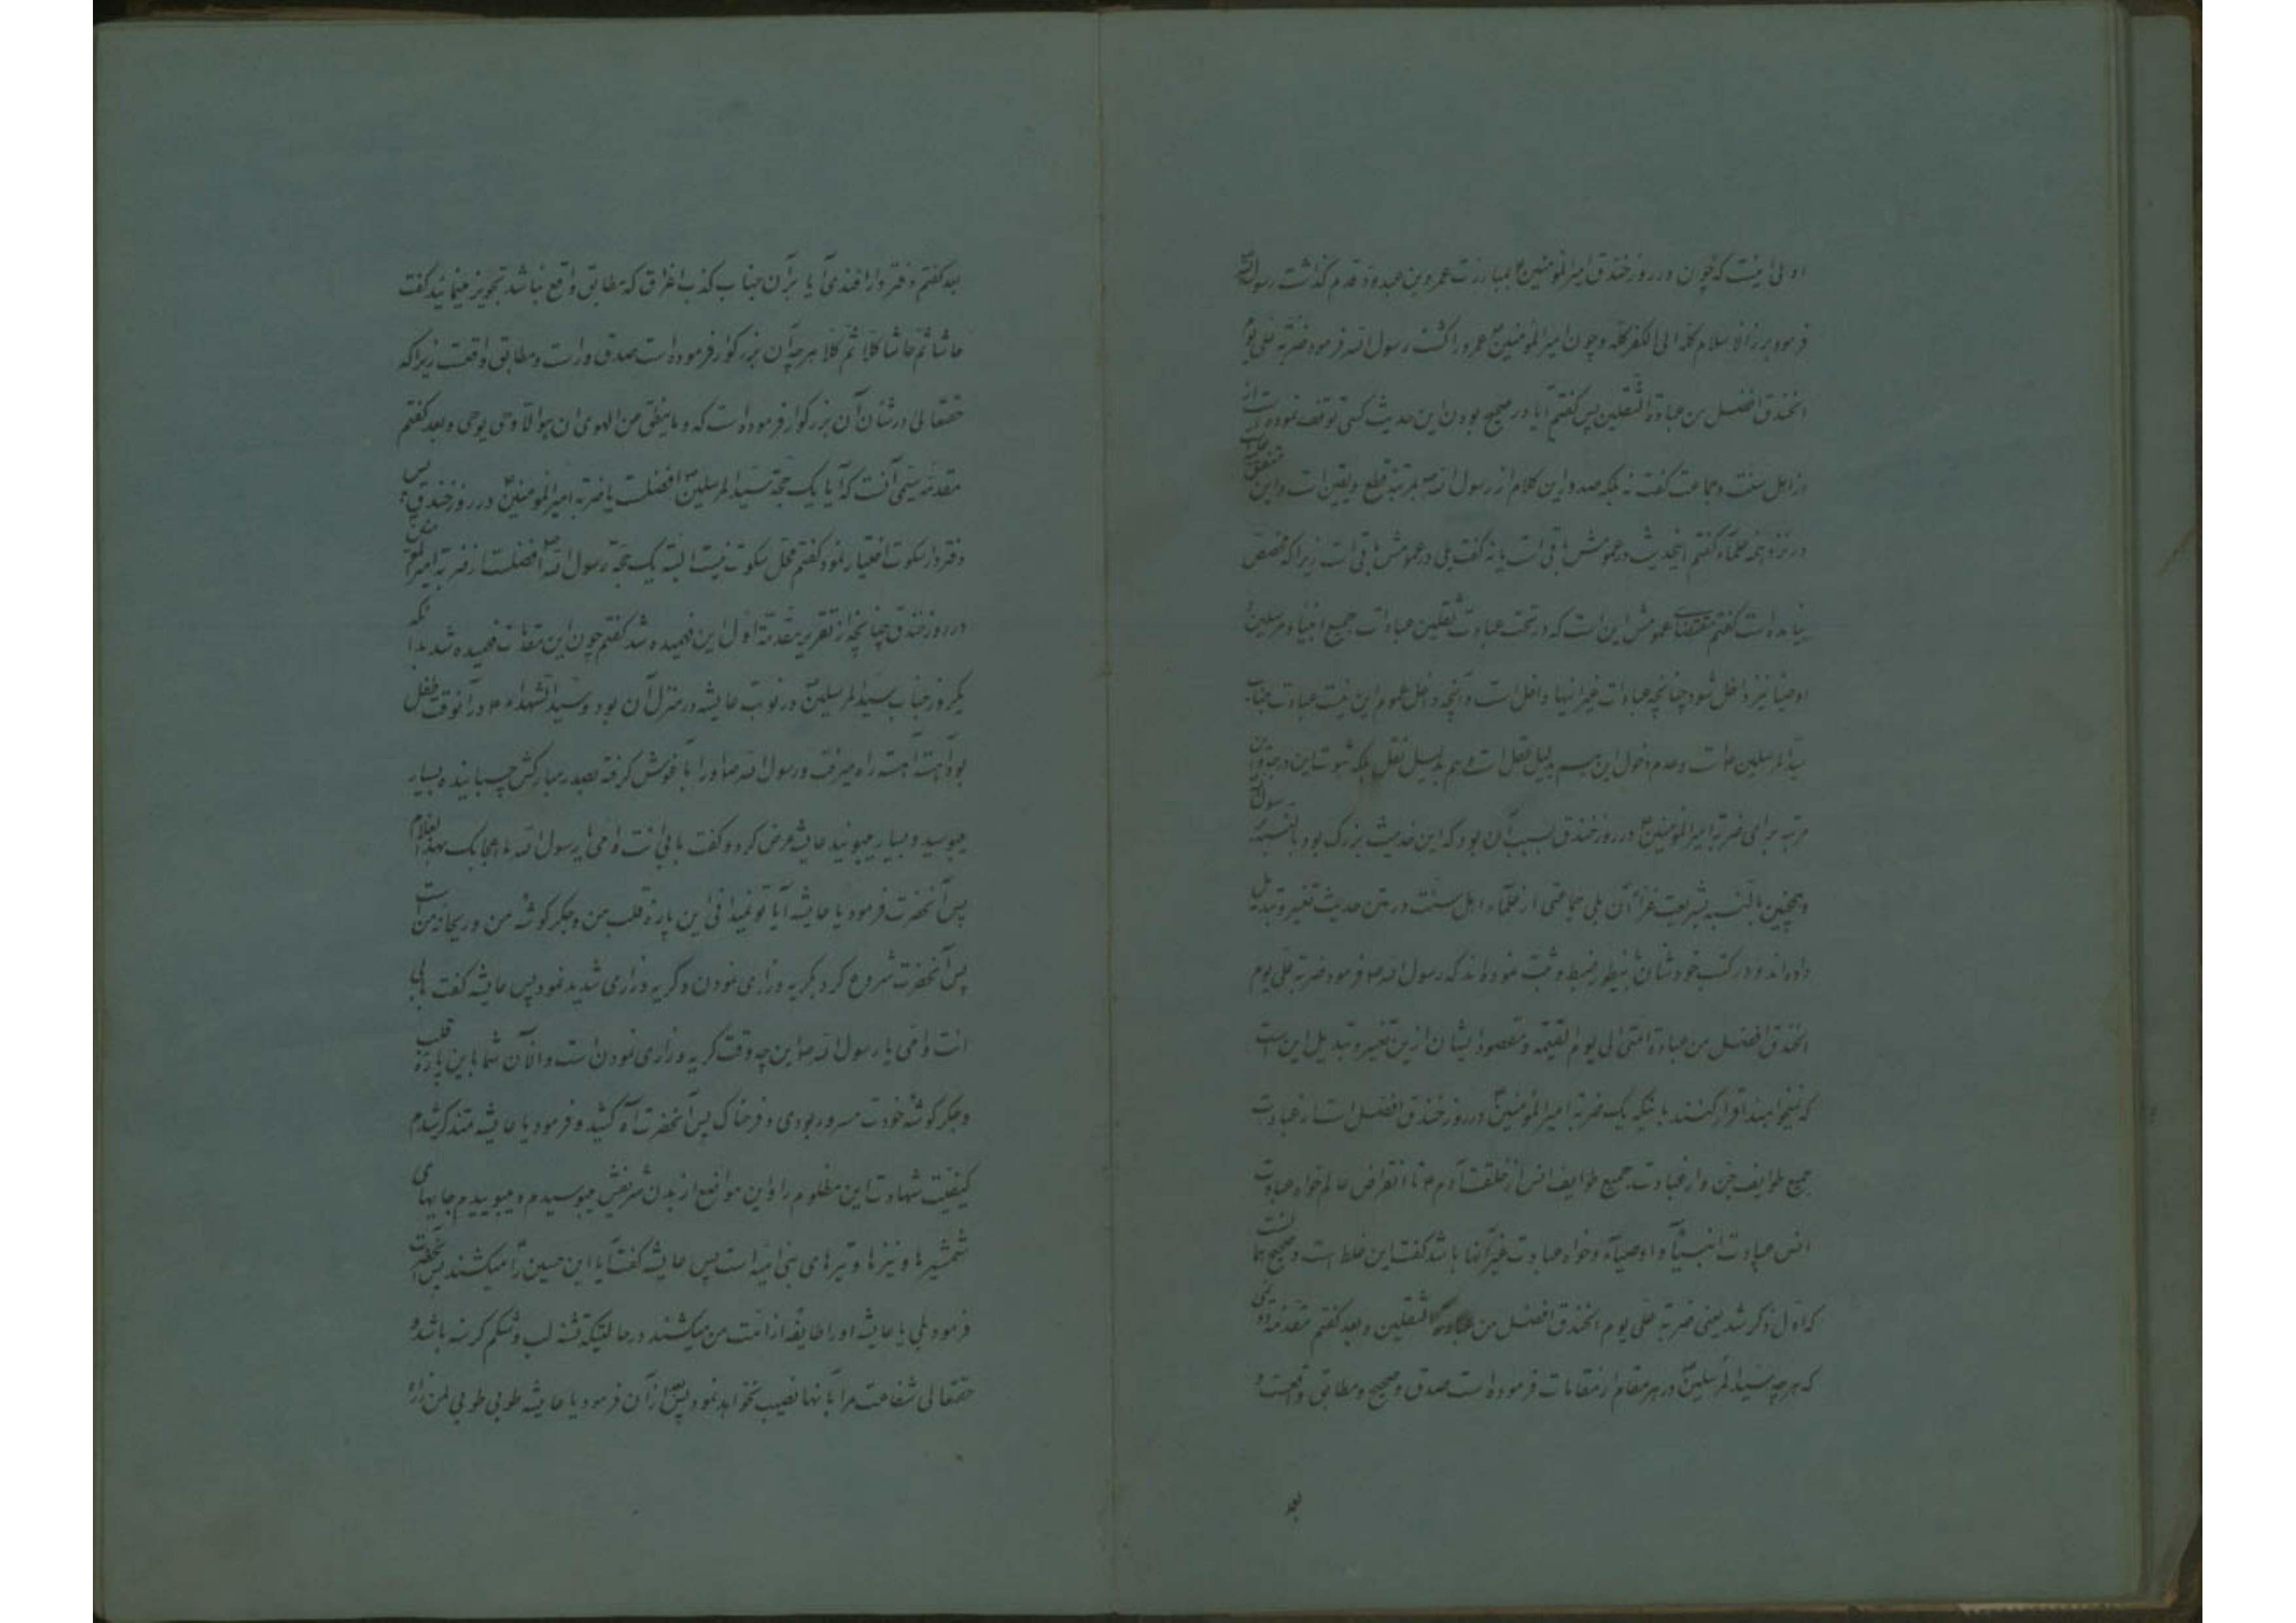 اولی اینست که چون در روز خندق امیرالمؤمنین ع بمبارزت عمرو بن عبدود قدم گذاشت رسول الله
فرمود برز الاسلام کله الی الکفر کله و چون امیرالمؤمنین ع عمرو را کشت رسول الله فرمود ضربة علی یوم
الخندق افضل من عبادة الثقلین پس گفتم آیا در صحیح بودن این حدیث کسی توقف نموده است از
از اهل سنت و جماعت گفت نه بلکه صدور این کلام از رسول الله ص بمرتبه قطع و یقین است و این
در نزد همه علماء گفتم اینحدیث در عمومش باقی است یا نه گفت بلی در عمومش باقی است زیرا که مخصص
نیامده است گفتم مقتضای عمومش این است که در تحت عبادت ثقلین عبادات جمیع انبیا و مرسلین و
اوصیا نیز داخل شود چنانچه عبادات غیر اینها داخل است و آنچه داخل عموم این نیست عبادت جناب
سید المرسلین ص است و عدم دخول این هم بدلیل عقل است و هم بدلیل نقل بلکه ثبوت این درجه و این
مرتبه برای ضربه امیرالمؤمنین ع در روز خندق بسبب آن بود که این حدیث بزرک بود بالنسبه رسول
و همچنین بالنسبه بشریعت غرای آن بلی جماعتی از علماء اهل سنت در متن حدیث تغییر و تبدیل
داده‌اند و در کتب خودشان باینطور ضبط و ثبت نموده‌اند که رسول الله ص فرمود ضربة علی یوم
الخندق افضل من عبادة امتی الی یوم القیمه و مقصود ایشان ازین تغییر و تبدیل این است
که نمیخواهند اقرار کنند باینکه یک ضربه امیرالمؤمنین ع در روز خندق افضل است از عبادت
جمیع طوایف جن و از عبادت جمیع طوایف انس از خلقت آدم ع تا انقراض عالم خواه عبادت
انس عبادت انبیآء و اوصیآء و خواه عبادت غیر آنها باشد گفت این غلط است و صحیح همانست
که اول ذکر شد یعنی ضربة علی یوم الخندق افضل من عبادة الثقلین و بعد گفتم مقدمه دویمی
که هر چه سید المرسلین ص در هر مقام از مقامات فرموده است صدق و صحیح و مطابق واقعست و
بعد
بعد گفتم دفتردار افندی آیا بر آن جناب کذب اغراق که مطابق واقع نباشد تجویز مینمائید گفت
حاشا ثم حاشا کلا ثم کلا هر چه آن بزرکوار فرموده است صدق و راست و مطابق واقعست زیرا که
حقتعالی در شأن آن بزرکوار فرموده است که و ما ینطق عن الهوی ان هو الا وحی یوحی و بعد گفتم
مقدمه سیمی آنست که آیا یک حجه سید المرسلین ص افضلست یا ضربه امیرالمؤمنین ع در روز خندق پس
دفتردار سکوت اختیار نمود گفتم محل سکوت نیست البته یک حجه رسول الله ص افضلست از ضربه امیرالمؤمنین
در روز خندق چنانچه از تقریر مقدمه اول این فهمیده شد گفتم چون این مقدمات فهمیده شد بدانکه
یکروز جناب سید المرسلین ص در نوبت عایشه در منزل آن بود و سید الشهداء ع در آنوقت طفل
بود آهسته آهسته راه میرفت و رسول الله ص او را بآغوش گرفته بصدر مبارکش چسبانیده بسیار
میبوسید و بسیار میبوئید عایشه عرض کرد و گفت بابی انت و امی یا رسول الله ما اعجابک بهذا الغلام
پس آنحضرت فرمود یا عایشه آیا تو نمیدانی این پاره قلب من و جگر گوشه من و ریحانه من است
پس آنحضرت شروع کرد بگریه و زاری نمودن و گریه و زاری شدید نمود پس عایشه گفت بابی
انت و امی یا رسول الله ص این چه وقت گریه و زاری نمودن است و الآن شما باین پاره قلب
و جگر گوشه خودت مسرور بودی و فرحناک پس آنحضرت آه کشید و فرمود یا عایشه متذکر شدم
کیفیت شهادت این مظلوم را و این مواضع از بدن شریفش میبوسیدم و میبوییدم جایهای
شمشیرها و نیزها و تیرهای بنی امیه است پس عایشه گفت آیا این حسین را میکشند پس آنحضرت
فرمود بلی یا عایشه او را طایفه از امت من میکشند در حالتیکه تشنه لب و شکم گرسنه باشد و
حقتعالی شفاعت مرا بآنها نصیب نخواهد نمود پس از آن فرمود یا عایشه طوبی طوبی لمن زاره